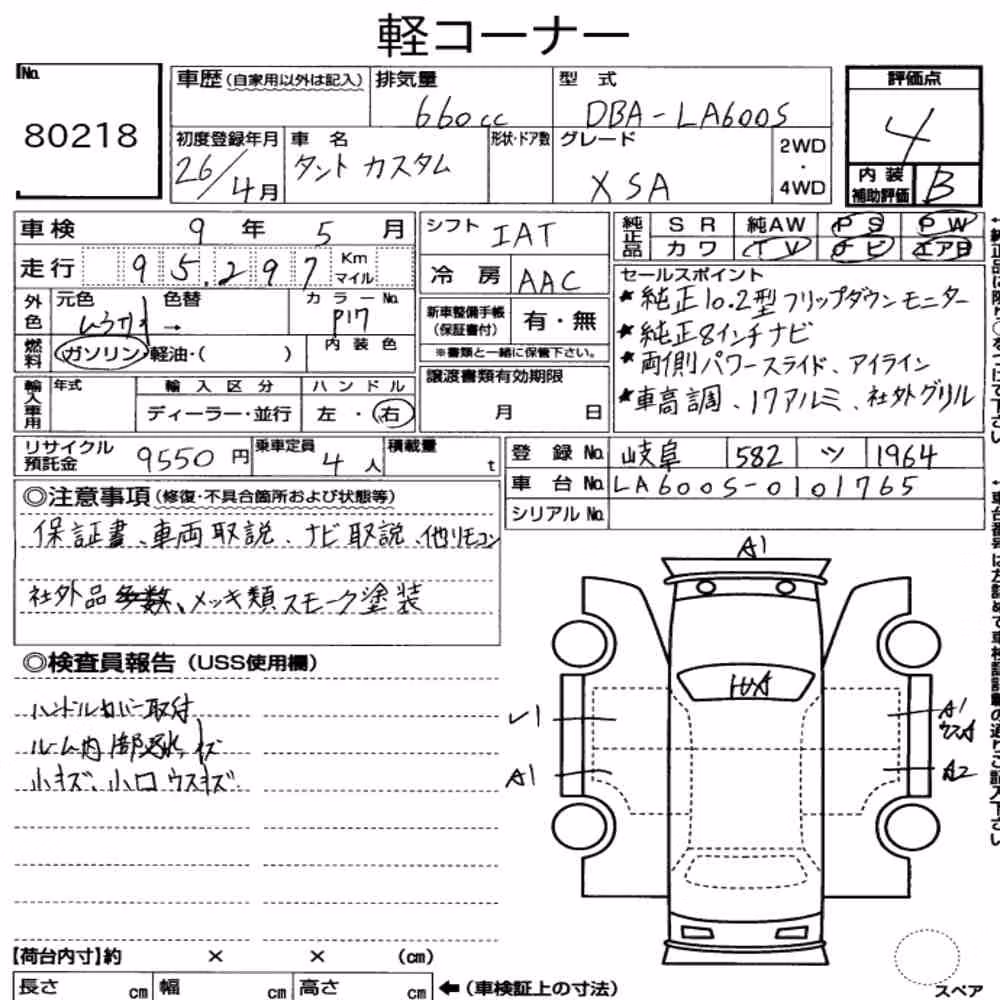 軽コーナー
No.
80218
車歴(自家用以外は記入)
排気量
660cc
型 式
DBA-LA600S
評価点
4
内装補助評価
B
初度登録年月
26/4月
車 名
タント カスタム
形状・ドア数
グレード
X SA
2WD
・
4WD
車検 9 年 5 月
シフト IAT
純正品
S R 純AW P S P W
カワ T V ナビ エアB
走行 95,297 Km マイル
冷 房 AAC
セールスポイント
★純正10.2型フリップダウンモニター
★純正8インチナビ
★両側パワースライド、アイライン
★車高調、17アルミ、社外グリル
外色
元色 色替
→
カラーNo.
P17
新車整備手帳(保証書付)
有・無
※書類と一緒に保管下さい。
燃料
ガソリン・軽油・( )
内 装 色
譲渡書類有効期限
月 日
輸入車用
年式
輸 入 区 分
ディーラー・並行
ハ ン ド ル
左 ・ 右
リサイクル預託金 9550 円
乗車定員 4 人
積載量 t
登 録 No. 岐阜 582 ツ 1964
車 台 No. LA600S-0101765
シリアル No.
◎注意事項(修復・不具合箇所および状態等)
保証書、車両取説、ナビ取説、他リモコン
社外品多数、メッキ類スモーク塗装
◎検査員報告(USS使用欄)
ハンドルカバー取付
ルーム内
小キズ、小凹 ウスキズ
A1
A1
A1
A2
【荷台内寸】約 × × (cm)
長さ cm 幅 cm 高さ cm ←(車検証上の寸法)
スペア